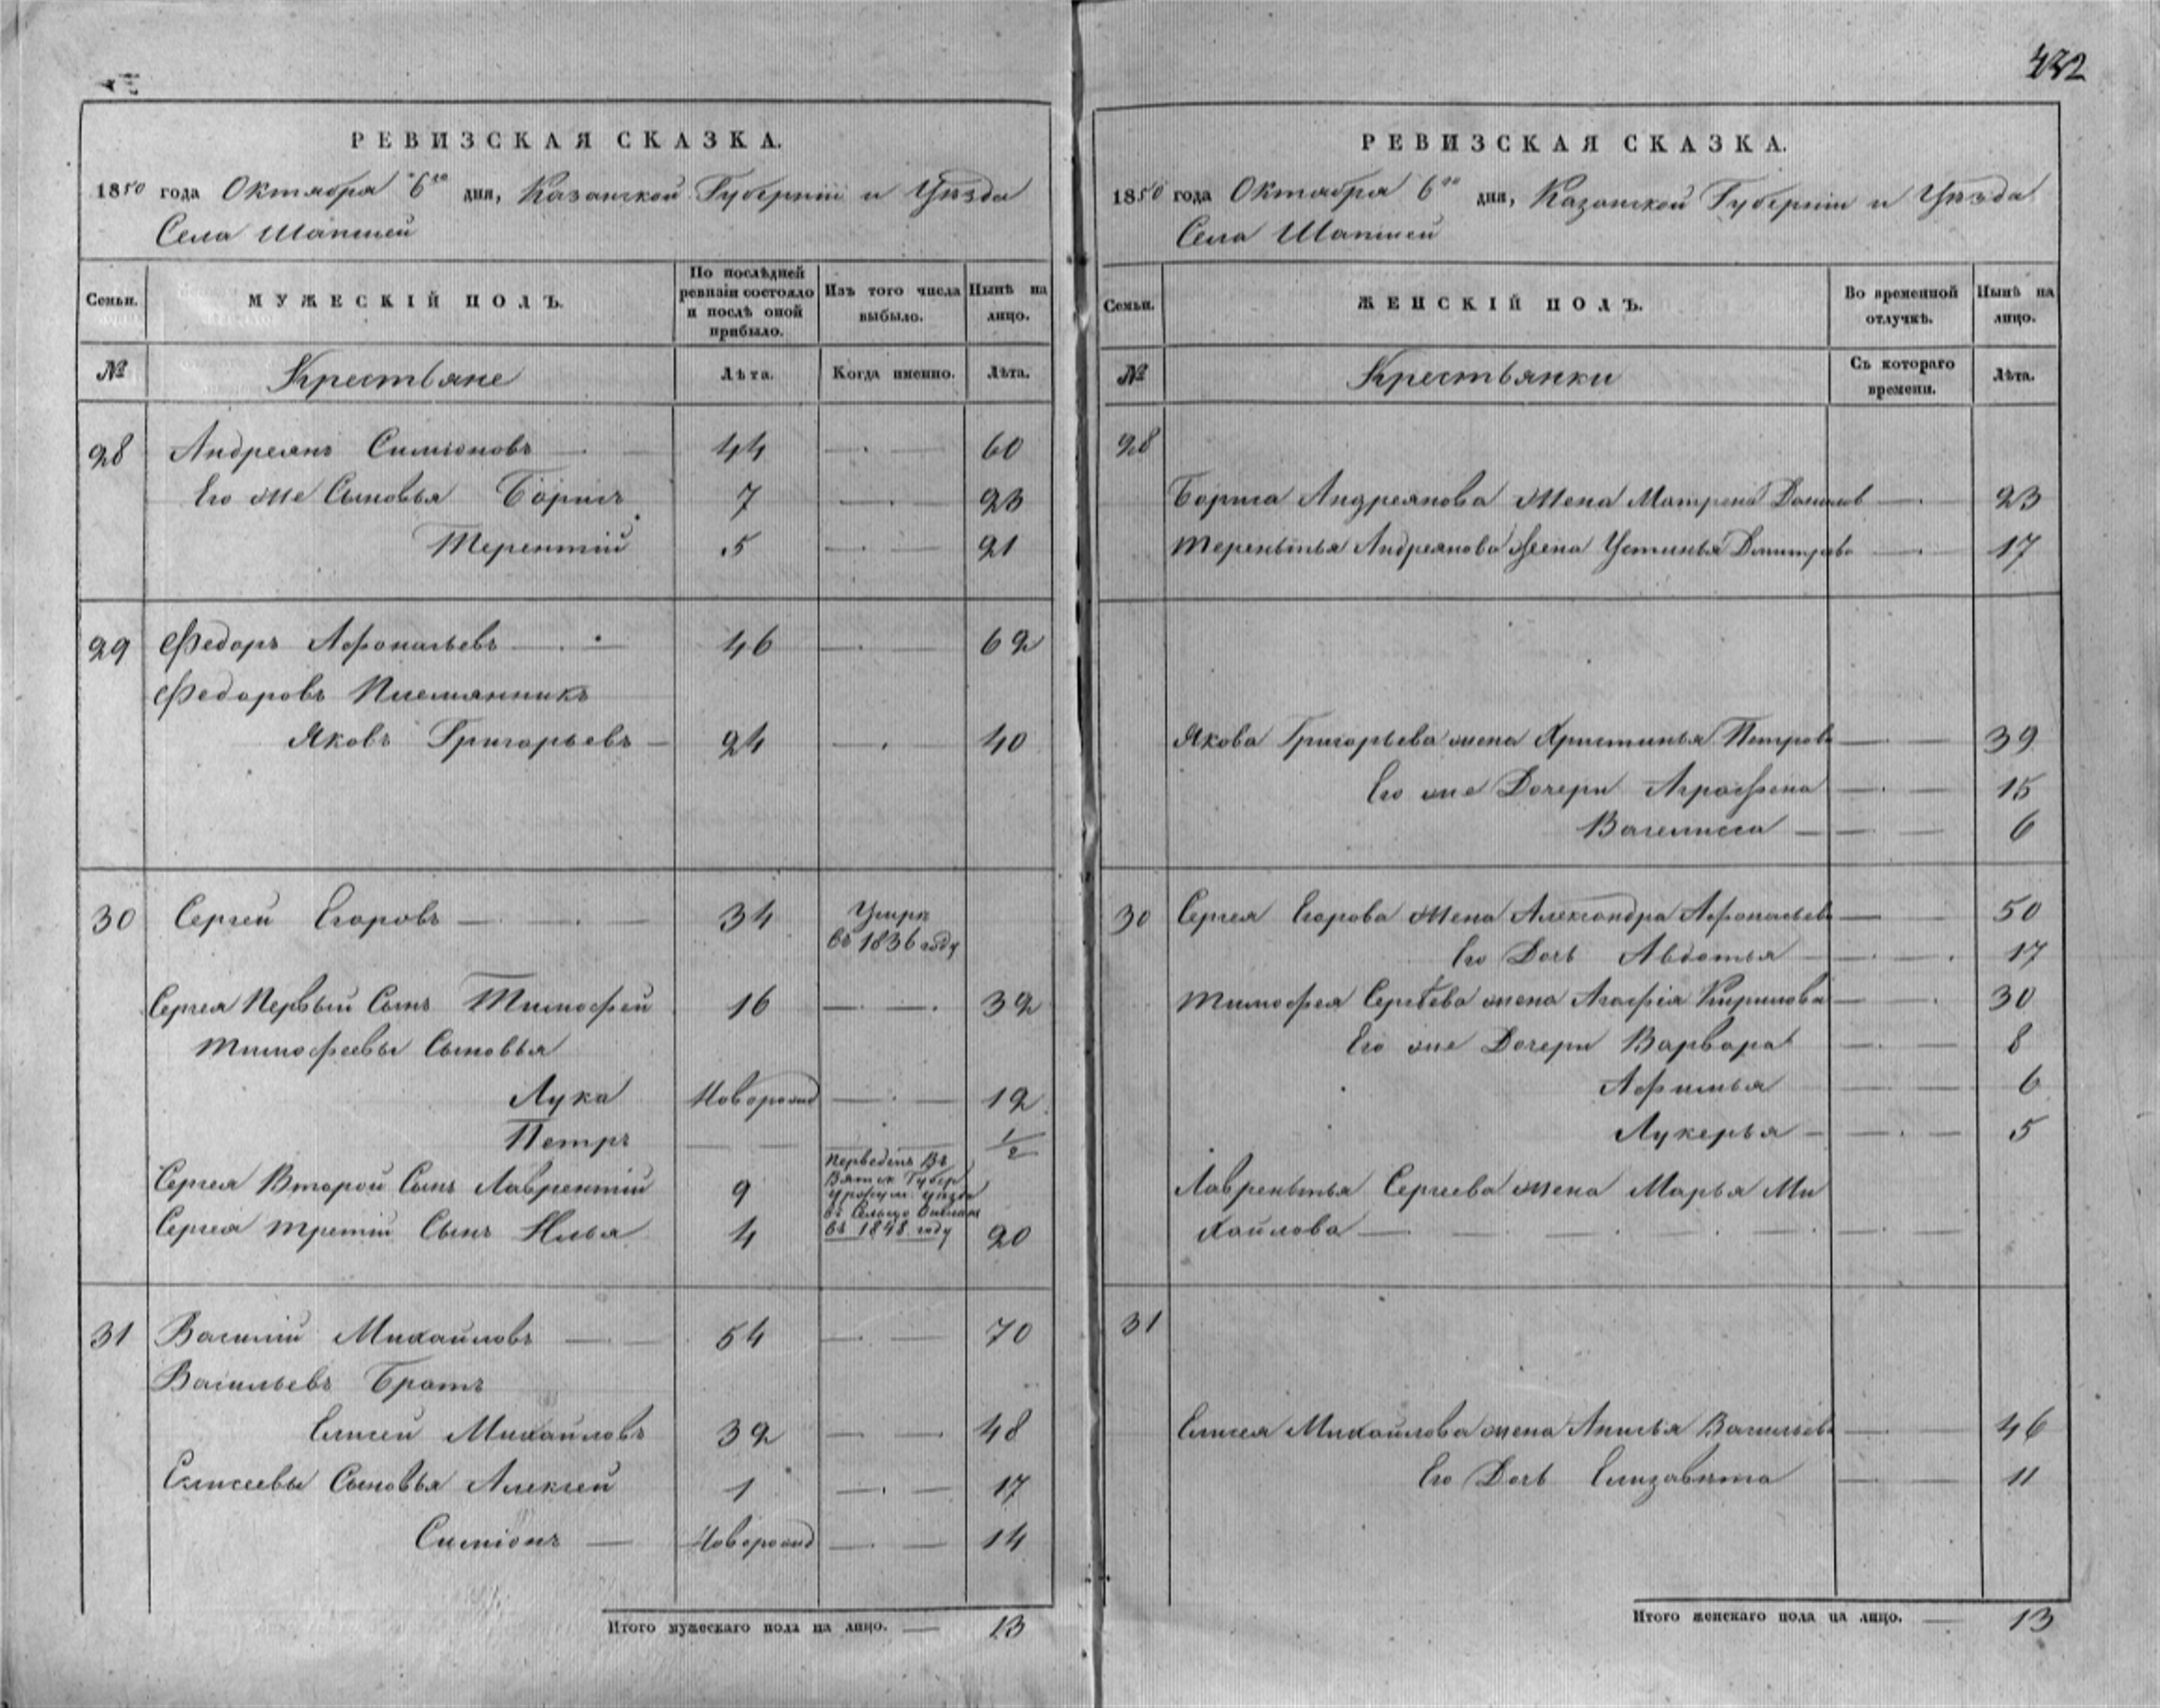 432
РЕВИЗСКАЯ СКАЗКА.
1850 года Октября 6го дня, Казанской Губернiи и Уѣзда
Села Шапшей
Семьи. МУЖЕСКIЙ ПОЛЪ. По послѣдней ревизiи состояло и послѣ оной прибыло. Изъ того числа выбыло. Нынѣ на лицо.
№ Крестьяне Лѣта. Когда именно. Лѣта.
28 Андреянъ Симіоновъ 44 60
Его же Сыновья Борисъ 7 23
Терентій 5 21
29 Федоръ Афонасьевъ 46 62
Федоровъ Племянникъ
Яковъ Григорьевъ 24 40
30 Сергей Егоровъ 34 Умеръ
въ 1836 году
Сергея Первый Сынъ Тимофей 16 32
Тимофеевы Сыновья
Лука Новорожд 12
Петръ 1/2
Сергея Второй Сынъ Лаврентій 9 Переведенъ Въ
Вятск Губер
уѣзда
въ Сельцо
въ 1848 году
Сергея третій Сынъ Илья 4 20
31 Василій Михайловъ 54 70
Васильевъ Братъ
Елисей Михайловъ 32 48
Елисеевы Сыновья Алексей 1 17
Симіонъ Новорожд 14
Итого мужескаго пола на лицо. 13
РЕВИЗСКАЯ СКАЗКА.
1850 года Октября 6го дня, Казанской Губернiи и Уѣзда
Села Шапшей
Семьи. ЖЕНСКIЙ ПОЛЪ. Во временной отлучкѣ. Нынѣ на лицо.
№ Крестьянки Съ котораго времени. Лѣта.
28
Бориса Андреянова жена Матрена Данилов 23
Терентья Андреянова жена Устинья Дмитрева 17
Якова Григорьева жена Христинья Петрова 39
Его же Дочери Аграфена 15
Василиса 6
30 Сергея Егорова жена Александра Афонасьева 50
Его Дочь Авдотья 17
Тимофея Сергеева жена Агафія Кирилова 30
Его же Дочери Варвара 8
Афимья 6
Лукерья 5
Лаврентья Сергеева жена Марья Ми
хайлова
31
Елисея Михайлова жена Анисья Васильева 46
Его Дочь Елизавѣта 11
Итого женскаго пола на лицо. 13